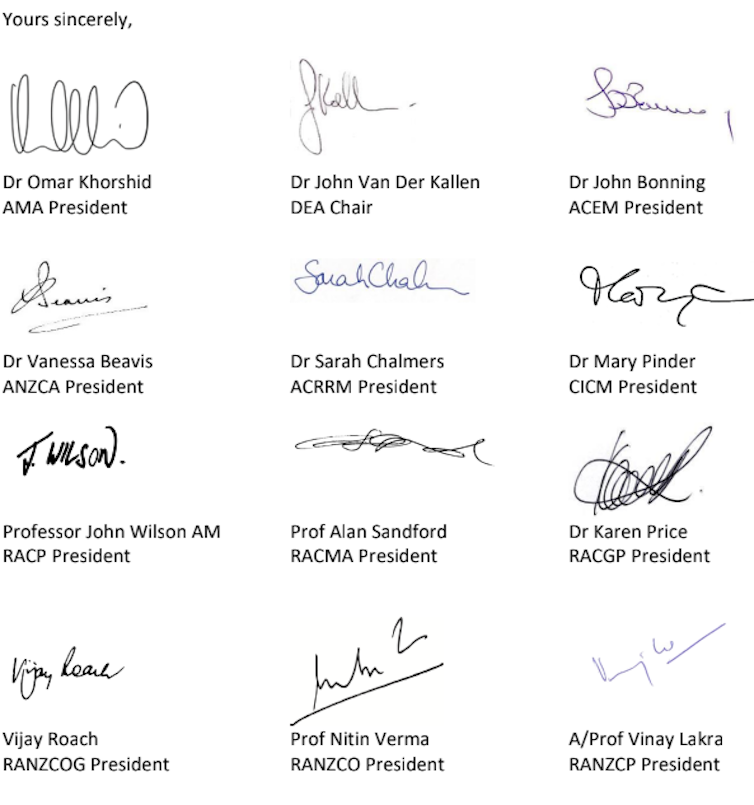 Yours sincerely,
J Kall
Dr Omar Khorshid
AMA President
Dr John Van Der Kallen
DEA Chair
Dr John Bonning
ACEM President
Sarah Chalm
Dr Vanessa Beavis
ANZCA President
Dr Sarah Chalmers
ACRRM President
Dr Mary Pinder
CICM President
J. WILSON.
Professor John Wilson AM
RACP President
Prof Alan Sandford
RACMA President
Dr Karen Price
RACGP President
Vijay Roach
Vijay Roach
RANZCOG President
Prof Nitin Verma
RANZCO President
A/Prof Vinay Lakra
RANZCP President